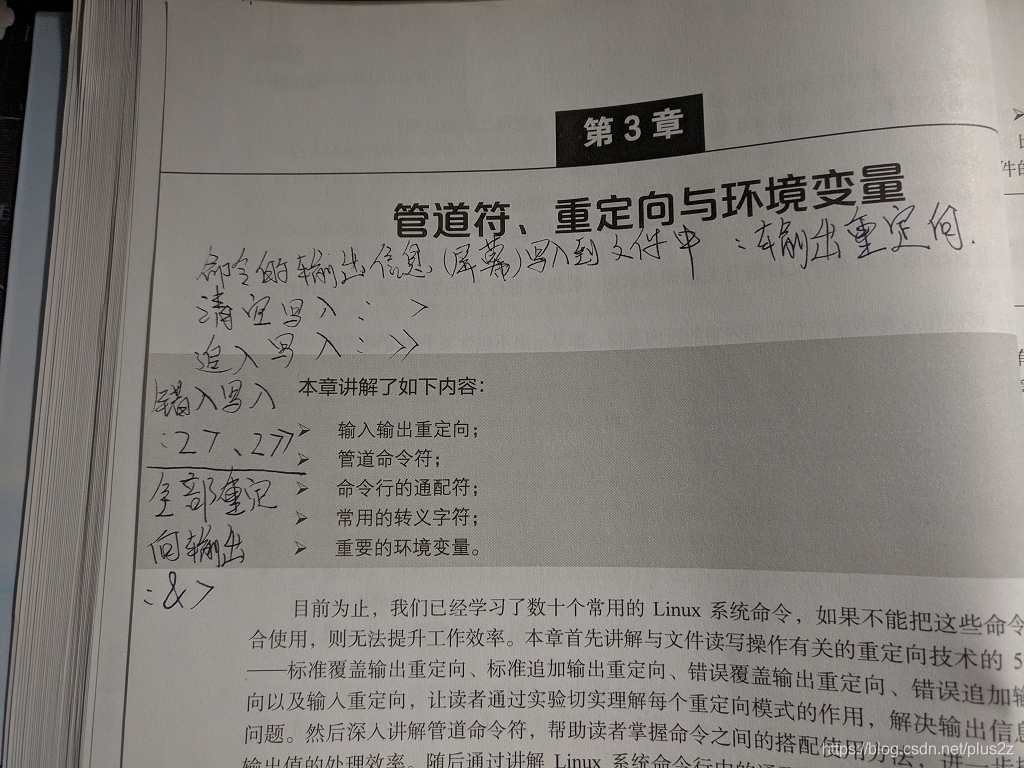 第 3 章
管道符、重定向与环境变量
命令的输出信息(屏幕)写入到文件中 :输出重定向.
清空写入: >
追入写入: >>
错入写入
:2>、2>>
全部重定
向输出
:&>
本章讲解了如下内容:
➢ 输入输出重定向;
➢ 管道命令符;
➢ 命令行的通配符;
➢ 常用的转义字符;
➢ 重要的环境变量。
目前为止,我们已经学习了数十个常用的 Linux 系统命令,如果不能把这些命令
合使用,则无法提升工作效率。本章首先讲解与文件读写操作有关的重定向技术的 5
——标准覆盖输出重定向、标准追加输出重定向、错误覆盖输出重定向、错误追加输
向以及输入重定向,让读者通过实验切实理解每个重定向模式的作用,解决输出信息
问题。然后深入讲解管道命令符,帮助读者掌握命令之间的搭配使用方法,进一步
输出值的处理效率。随后通过讲解 Linux 系统命令行中的通
https://blog.csdn.net/plus2z